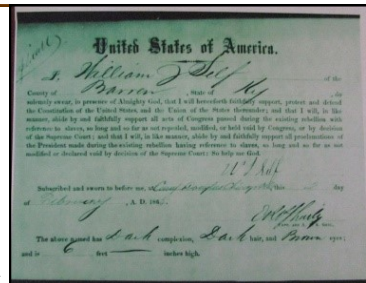 United States of America.
I, William J Self of the
County of Barren, State of Ky, do
solemnly swear, in presence of Almighty God, that I will henceforth faithfully support, protect and defend
the Constitution of the United States, and the Union of the States thereunder; and that I will, in like
manner, abide by and faithfully support all acts of Congress passed during the existing rebellion with
reference to slaves, so long and so far as not repealed, modified, or held void by Congress, or by decision
of the Supreme Court; and that I will, in like manner, abide by and faithfully support all proclamations of
the President made during the existing rebellion having reference to slaves, so long and so far as not
modified or declared void by decision of the Supreme Court; So help me God.
Subscribed and sworn to before me, at day
of February A. D. 186
The above named has Dark complexion, Dark hair, and Brown eyes;
and is 6 feet inches high.